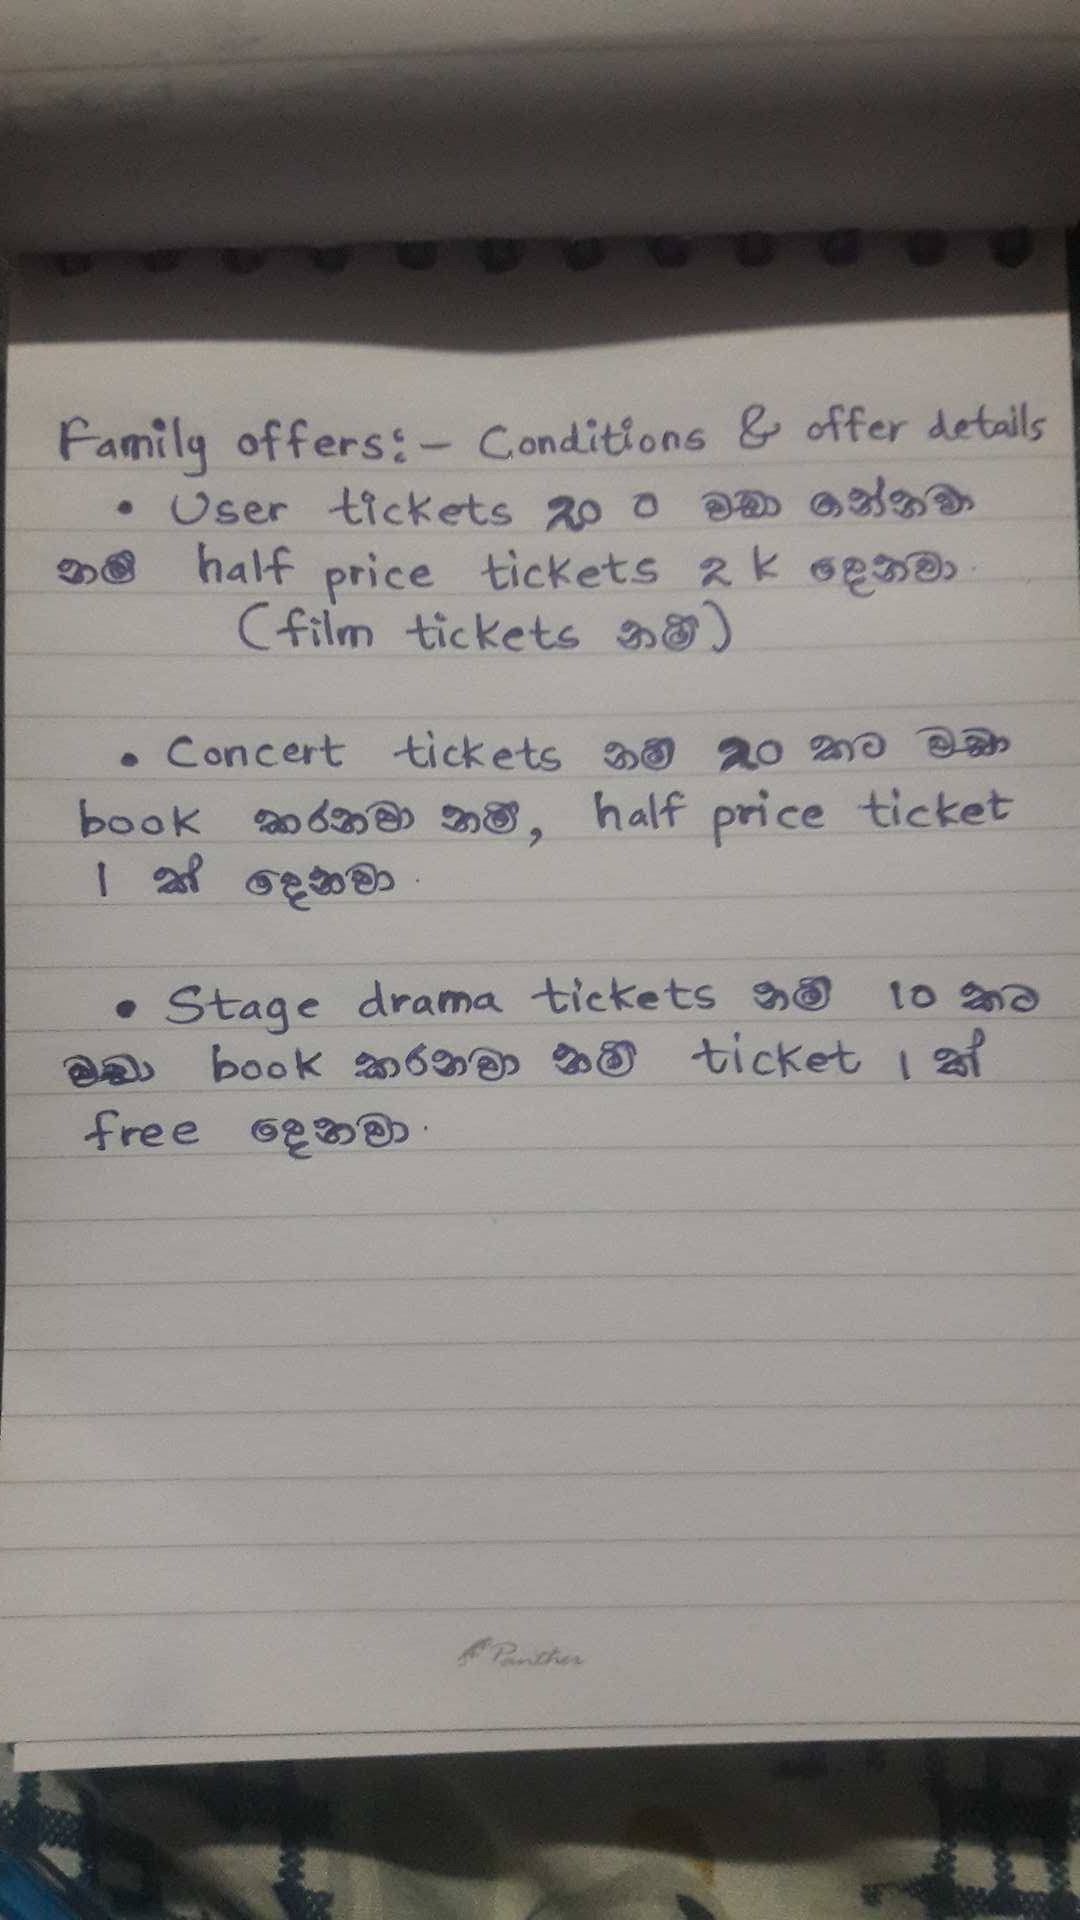 Family offers:- Conditions & offer details
• User tickets 20 ට වඩා ගන්නවා
නම් half price tickets 2 k දෙනවා.
(film tickets නම්)
• Concert tickets නම් 20 කට වඩා
book කරනවා නම්, half price ticket
1 ක් දෙනවා.
• Stage drama tickets නම් 10 කට
වඩා book කරනවා නම් ticket 1 ක්
free දෙනවා.
Panther